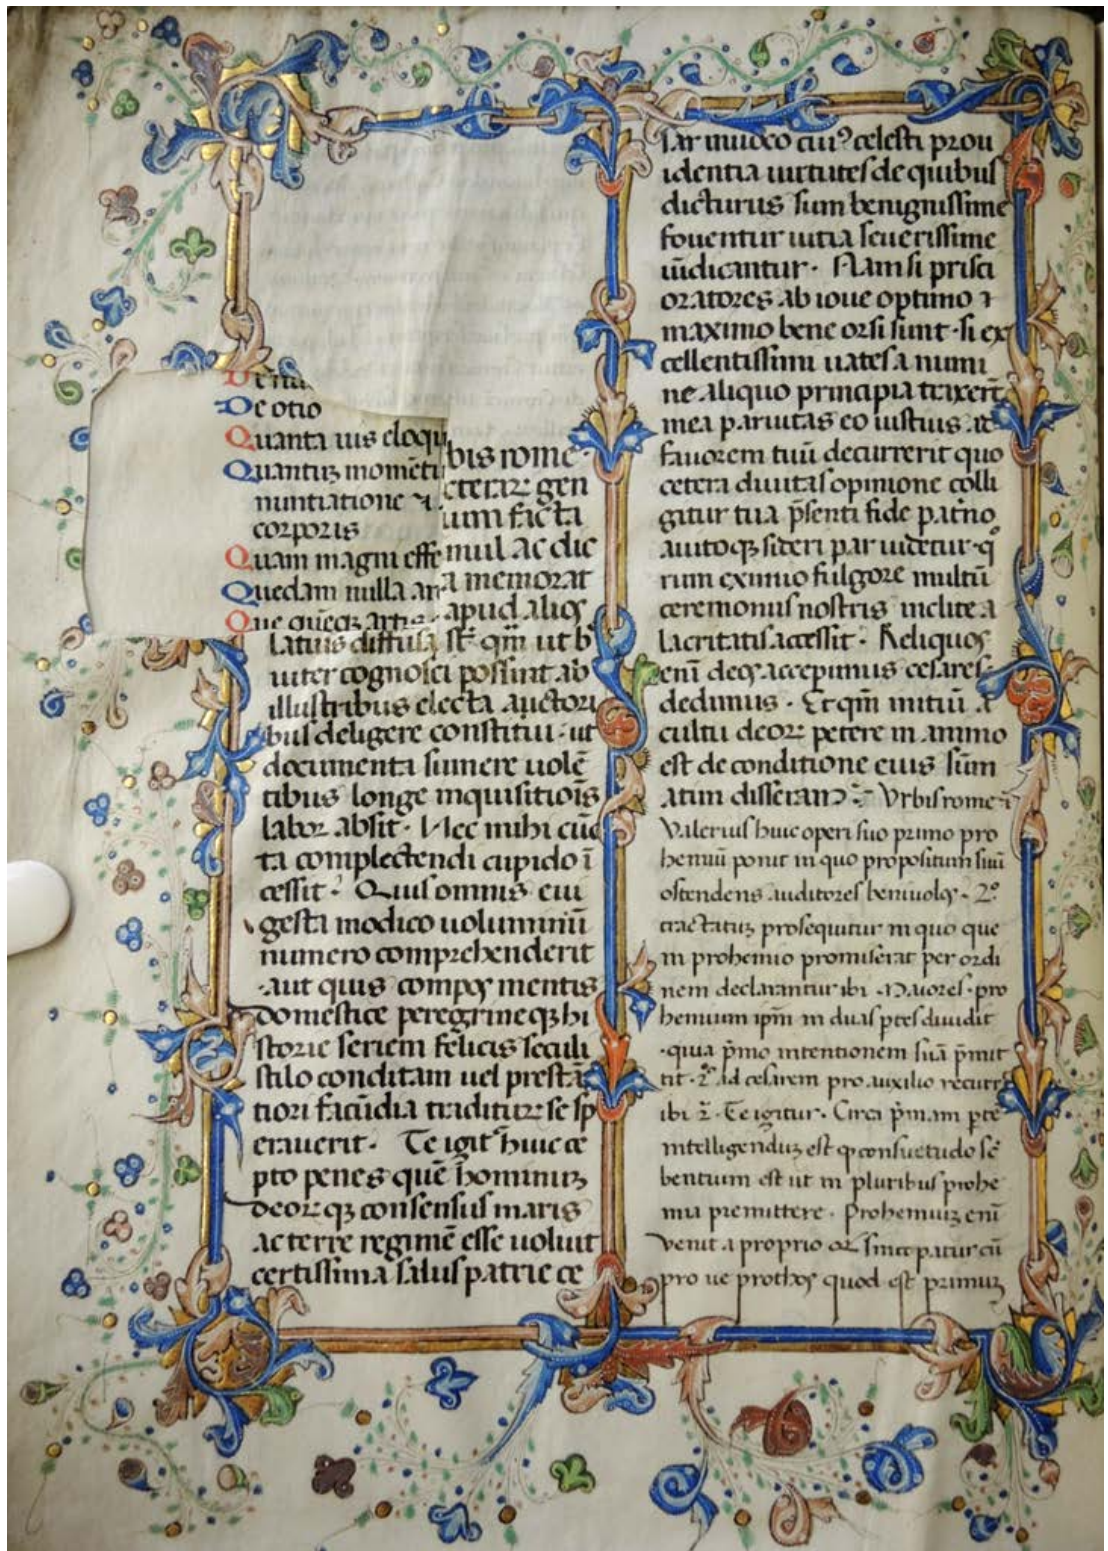 De otio
Quanta uis eloqu
Quantuz momēti
nuntiatione ⁊
corporis
Quam magni effe
Quedam nulla ar
Que queqz artis
bis rome
cterarꝝ gen
ium facta
mul ac dic
a memorat
apud aliqs
latius diffusa st qm̄ ut b
uiter cognosci possint ab
illustribus electa auctori
bus deligere constitui · ut
documenta sumere uolē
tibus longe inquisitiōis
labor absit · Nec mihi cūc
ta complectendi cupido ī
cessit · Quis omnis eui
gesta modico uoluminū
numero comprehenderit
·aut quis compos mentis
domestice peregrineqz hi
storie seriem felicis seculi
stilo conditam uel prestā
tiori facūdia traditurꝝ se sp
erauerit · Te igit̄ huic ce
pto penes quē hominuz
deorꝝ qz consensus maris
ac terre regimē esse uoluit
certissima salus patrie ce
sar inuoco cui⁹ celesti proui
identia uirtutes de quibus
dicturus sum benignissime
fouentur uitia seuerissime
iūdicantur · Nam si prisci
oratores ab ioue optimo ⁊
maximo bene orsi sunt · si ex
cellentissimi uates a numi
ne aliquo principia traxert̄
mea paruitas eo iustius ad
fauorem tuū decurrerit quo
cetera diuitas opinione colli
gitur tua p̄senti fide patn̄o
auitoqz sideri par uidetur · q
rum eximio fulgore multū
ceremoniis nostris inclite a
lacritatis accessit · Reliquos
eni᷎ deos accepimus cesares
dedimus · Et qm̄ initiū a
cultu deorꝝ petere in animo
est de conditione eius sum̄
atim disseram · Urbis rome ⁊
Valerius huic operi suo primo pro
hemiū ponit in quo propositum suū
ostendens auditores beniuolos · 2º
tractatuz prosequitur in quo que
in prohemio promiserat per ordi
nem declarantur ibi · Maiores · pro
hemium ipm̄ in duas ptes diuidit
·quia p̄mo intentionem suā p̄mit
tit · 2º ad cesarem pro auxilio recurr̄
ibi 2ª · Te igitur · Circa p̄mam pte
intelligenduz est q consuetudo sc̄
bentium est ut in pluribus prohe
mia premittere · Prohemiuz eni᷎
uenit a proprio
pro ue prothos quod est primuz